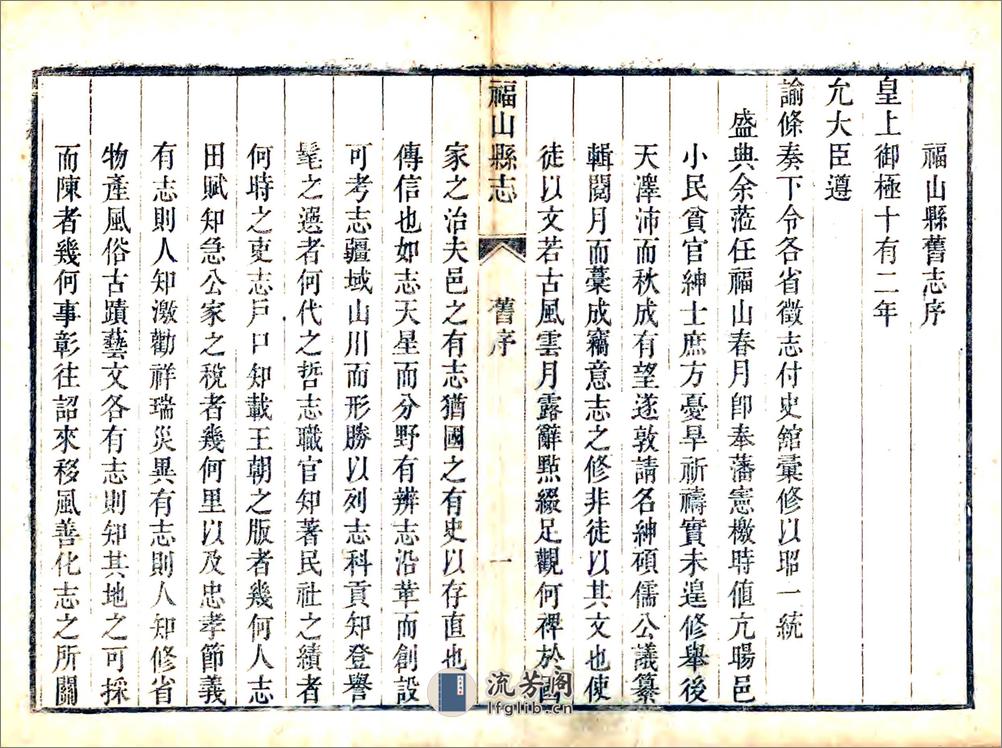 福山縣舊志序
皇上御極十有二年
允大臣遵
諭條奏下令各省徵志付史館彙修以昭一統
盛典余蒞任福山春月卽奉藩憲檄時値亢暘邑
小民貧官紳士庶方憂旱祈禱實未遑修舉後
天澤沛而秋成有望遂敦請名紳碩儒公議纂
輯閱月而藁成竊意志之修非徒以其文也使
徒以文若古風雲月露辭點綴足觀何裨於國
福山縣志 舊序 一
家之治夫邑之有志猶國之有史以存直也
傳信也如志天星而分野有辨志沿革而創設
可考志疆域山川而形勝以列志科貢知登譽
髦之選者何代之哲志職官知著民社之績者
何時之吏志戶口知載王朝之版者幾何人志
田賦知急公家之稅者幾何里以及忠孝節義
有志則人知激勸祥瑞災異有志則人知修省
物產風俗古蹟藝文各有志則知其地之可採
而陳者幾何事彰往詔來移風善化志之所關
流芳閣
lfglib.cn